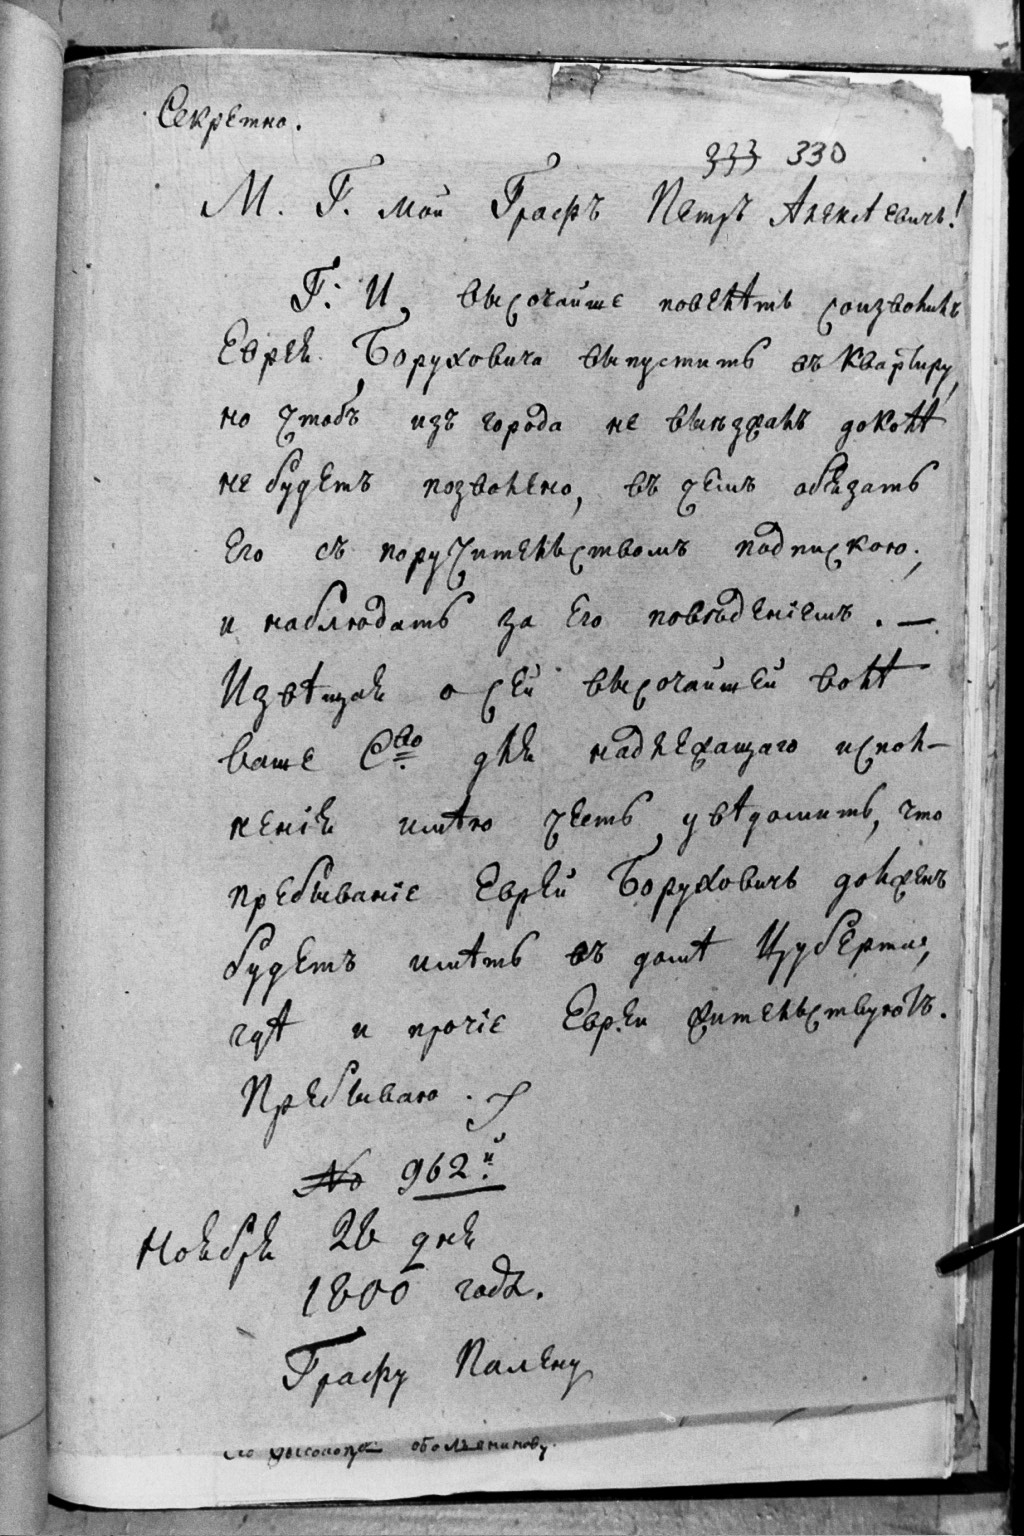 Секретно.
333 330
М. Г. мой Графъ Петръ Алексѣевичъ!
Г: И, высочайше повелѣть соизволилъ
Еврея Боруховича выпустить въ квартиру,
но чтобъ изъ города не выѣзжалъ доколѣ
не будетъ позволено, въ чемъ обязать
его съ поручительствомъ подпискою;
и наблюдать за его поведѣніемъ. —
Извѣщая о сей высочайшей волѣ
ваше С-во для надлежащаго испол-
ненія имѣю честь увѣдомить, что
пребываніе Еврей Боруховичъ долженъ
будетъ имѣть въ домѣ Цуберта,
гдѣ и прочіе Евреи жительствуютъ.
Пребываю.
№ 962й
Ноября 26 дня
1800 года.
Графу Палену
обольянинову.